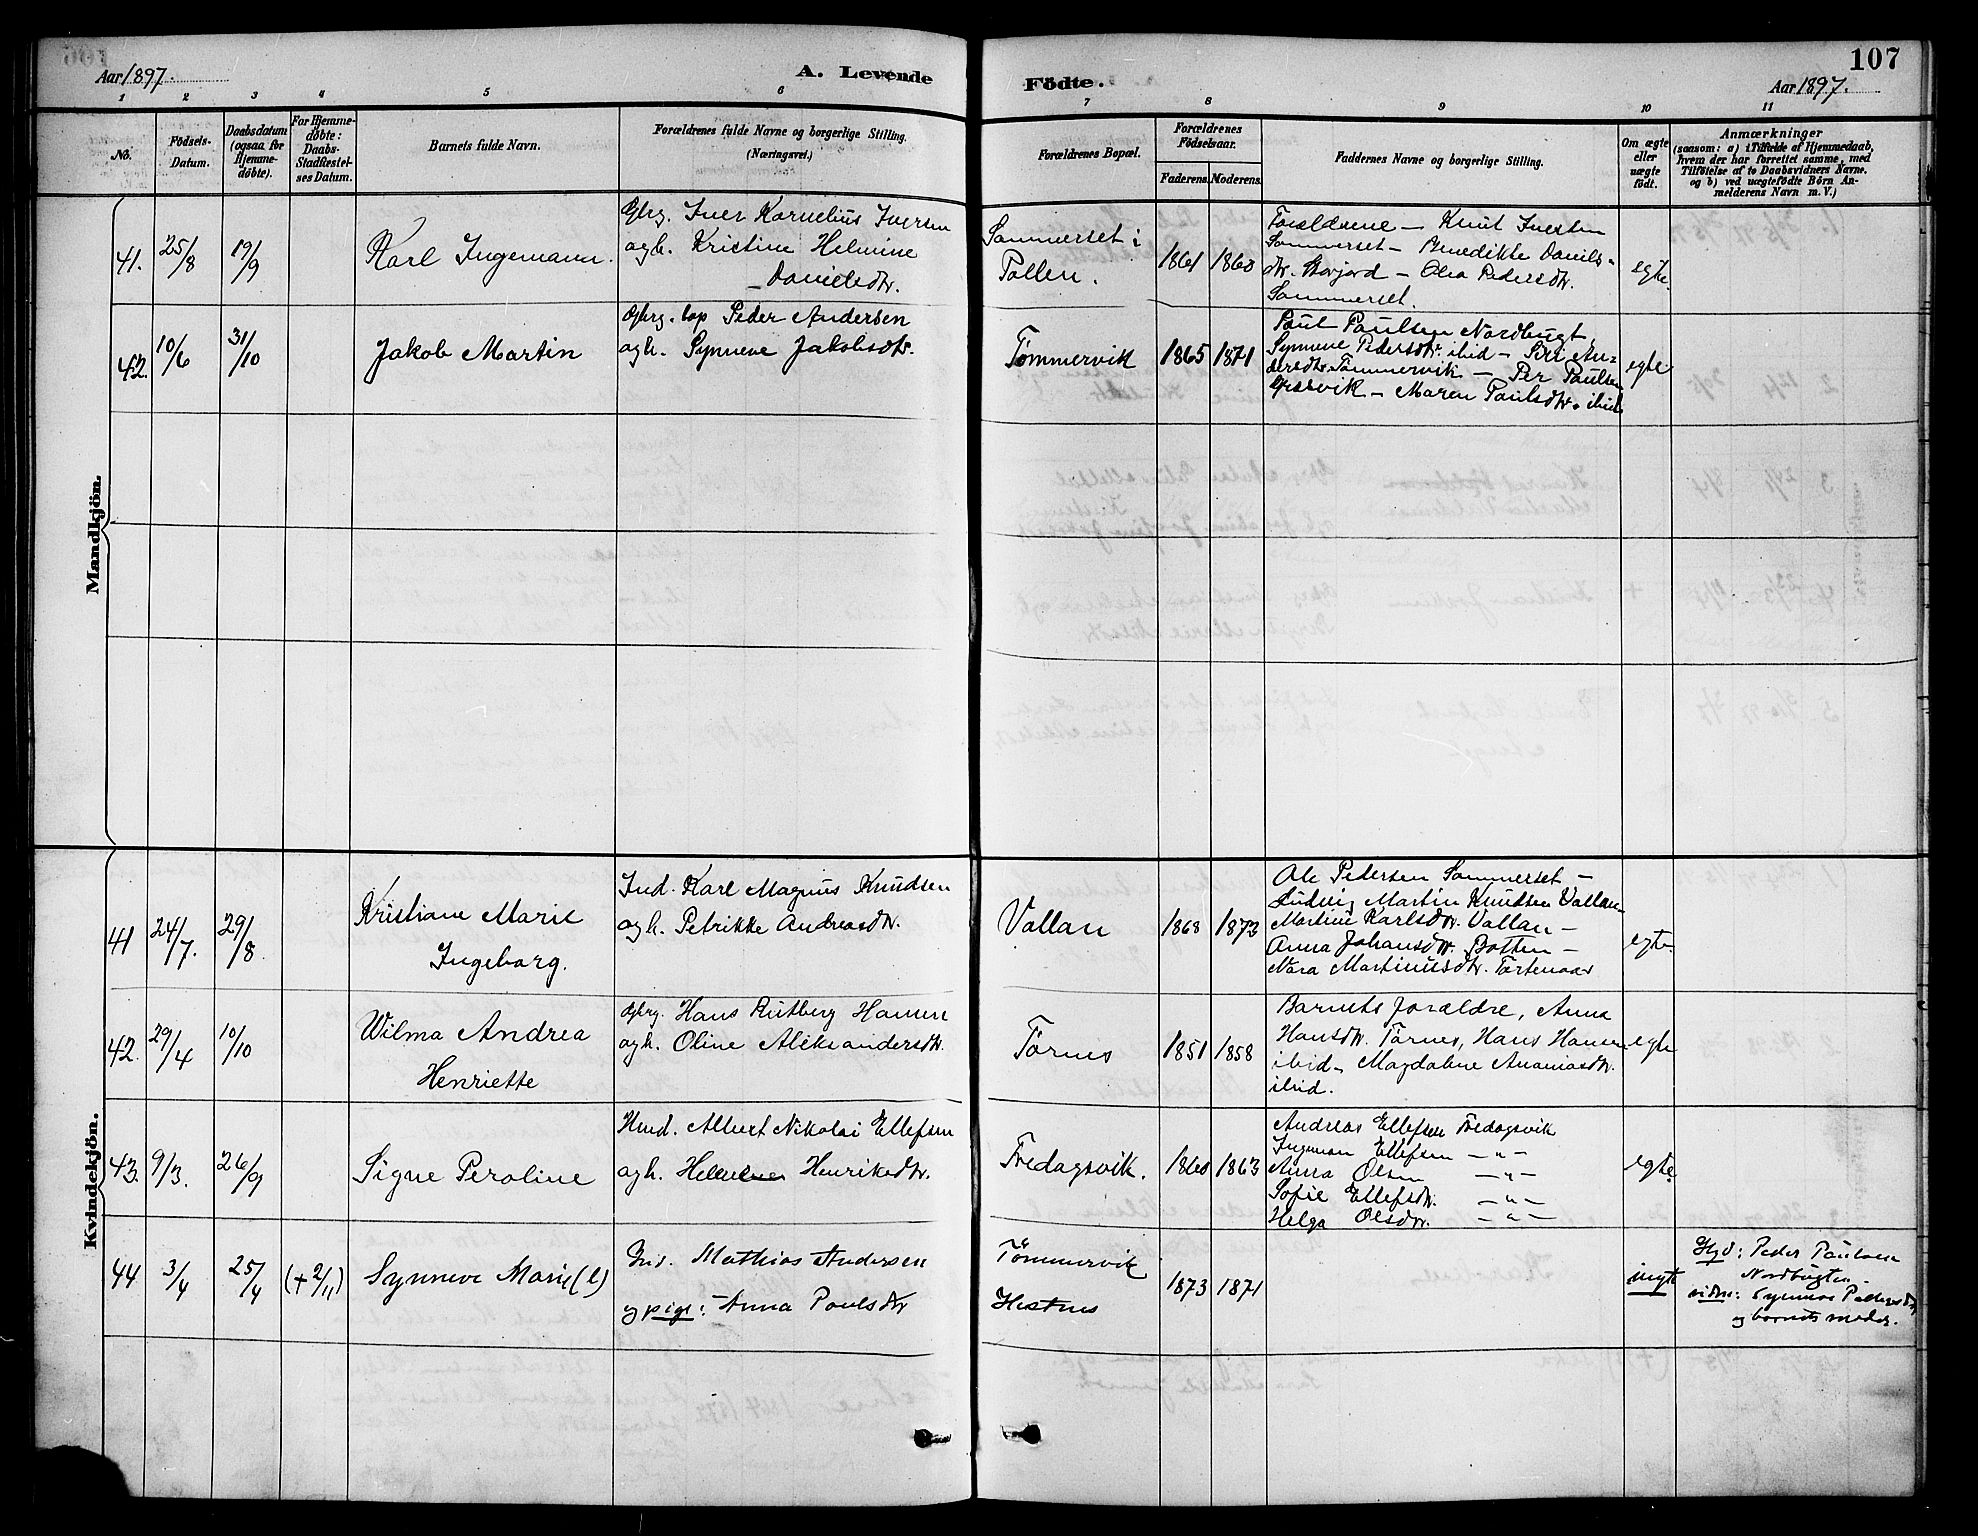 Aar 1897.
A. Levende
Födte.
107
Aar 1897.
1 2 3 4 5 6 7 8 9 10 11
No.
Födsels-
Datum.
Daabsdatum
(ogsaa for
Hjemme-
döbte).
For Hjemme-
döbte:
Daabs-
Stadfæstel-
ses Datum.
Barnets fulde Navn.
Forældrenes fulde Navne og borgerlige Stilling.
(Næringsvei.)
Forældrenes Bopæl.
Forældrenes
Födselsaar.
Faderens.
Moderens.
Faddernes Navne og borgerlige Stilling.
Om ægte
eller
uægte
födt.
Anmærkninger
(saasom: a) i Tilfælde af Hjemmedaab,
hvem der har forrettet samme, med
Tilföielse af to Daabsvidners Navne,
og b) ved uægtefödte Börn An-
melderens Navn m. V.)
Mandkjön.
41.
25/8
19/9
Karl Ingemann.
Gbrg. Iver Kornelius Iversen
ogh. Kristine Helmine
Danielsdtr.
Sommerset i
Pollen.
1861
1860
Forældrene – Knut Iversen
Sommerset – Benedikte Daniels-
dtr. Storjord – Olea Pedersdtr.
Sommerset.
egte.
42.
10/6
31/10
Jakob Martin
Gbrg. Lap Peder Andersen
ogh. Synneve Jakobsdtr.
Tømmervik
1865
1871
Paul Paulsen Nordbugt,
Synneve Pedersdtr. ibid – Siri An-
dersdtr. Tømmervik – Per Paulsen
– Maren Paulsdtr. ibid
egte
Kvindekjön.
41
24/7.
29/8.
Kristiane Marie
Ingeborg.
Ind. Karl Magnus Knudsen
ogh. Petrikke Andreasdtr.
Vallan
1868
1873
Ole Pedersen Sommerset –
Ludvig Martin Knudsen Vallan –
Martine Karlsdtr. Vallan –
Anna Johansdtr. Botten –
Nora Martinusdtr. Tortenaas
egte.
42.
29/4
10/10
Wilma Andrea
Henriette
Gbrg. Hans Rutberg Hansen
ogh. Oline Aleksandersdtr.
Tørnes
1851
1858
Barnets forældre, Anna
Hansdtr. Tørnes, Hans Hansen
ibid – Magdalene Ananiasdtr.
ibid.
egte
43.
9/3.
26/9
Signe Peroline
Hmd. Albert Nikolai Ellefsen
ogh. Helmine Henriksdtr.
Fredagsvik.
1860
1863
Andreas Ellefsen Fredagsvik
Ingeman Ellefsen – " –
Anna Olsen – " –
Sofie Ellefsdtr. – " –
Helga Olsdtr. – " –
egte.
44
3/4
25/4
(+ 2/11)
Synneve Marie (l)
Ind. Mathias Andersen
og pige: Anna Poulsdtr
Tømmervik
Hestnes
1873
1871
uegte
Hjd: Peder Paulsen
Nordbugten –
vidne: Synneve Pedersdtr
og barnets moder.